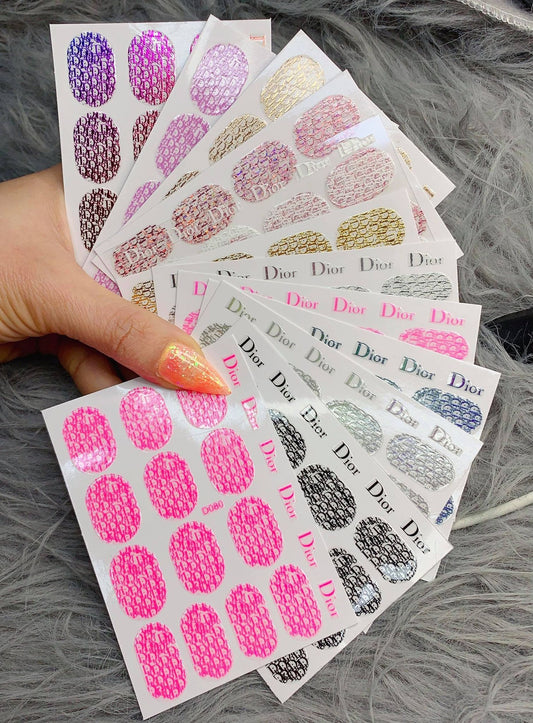 Dior Dior Dior
Dior Dior Dior Dior
Dior Dior Dior Dior
Dior Dior Dior
Dior Dior Dior Dior
Dior Dior Dior Dior Dior
Dior Dior Dior Dior Dior
D080